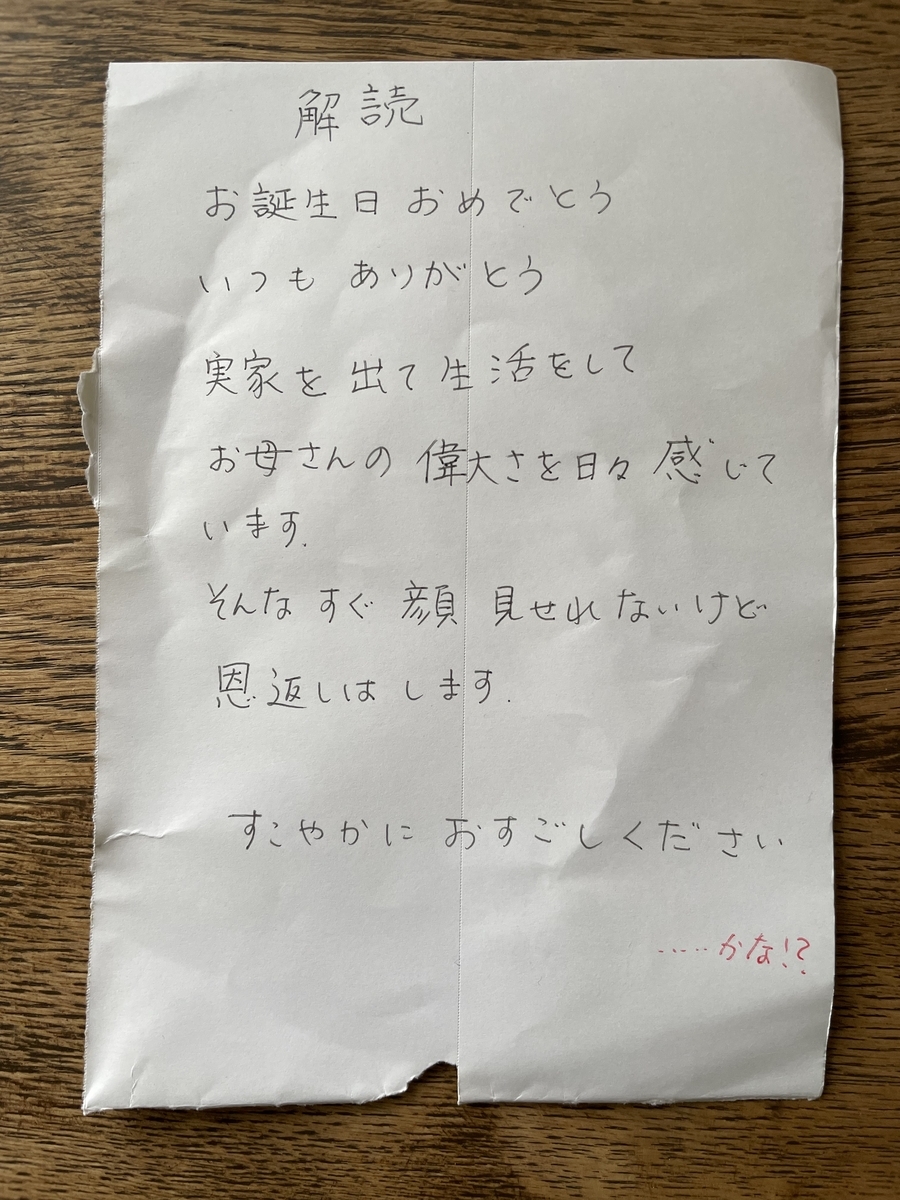 解読
お誕生日 おめでとう
いつも ありがとう
実家を 出て 生活をして
お母さんの 偉大さを日々 感じて
います.
そんな すぐ 顔 見せれないけど
恩返しは します.
すこやかに おすごしください
……かな!?